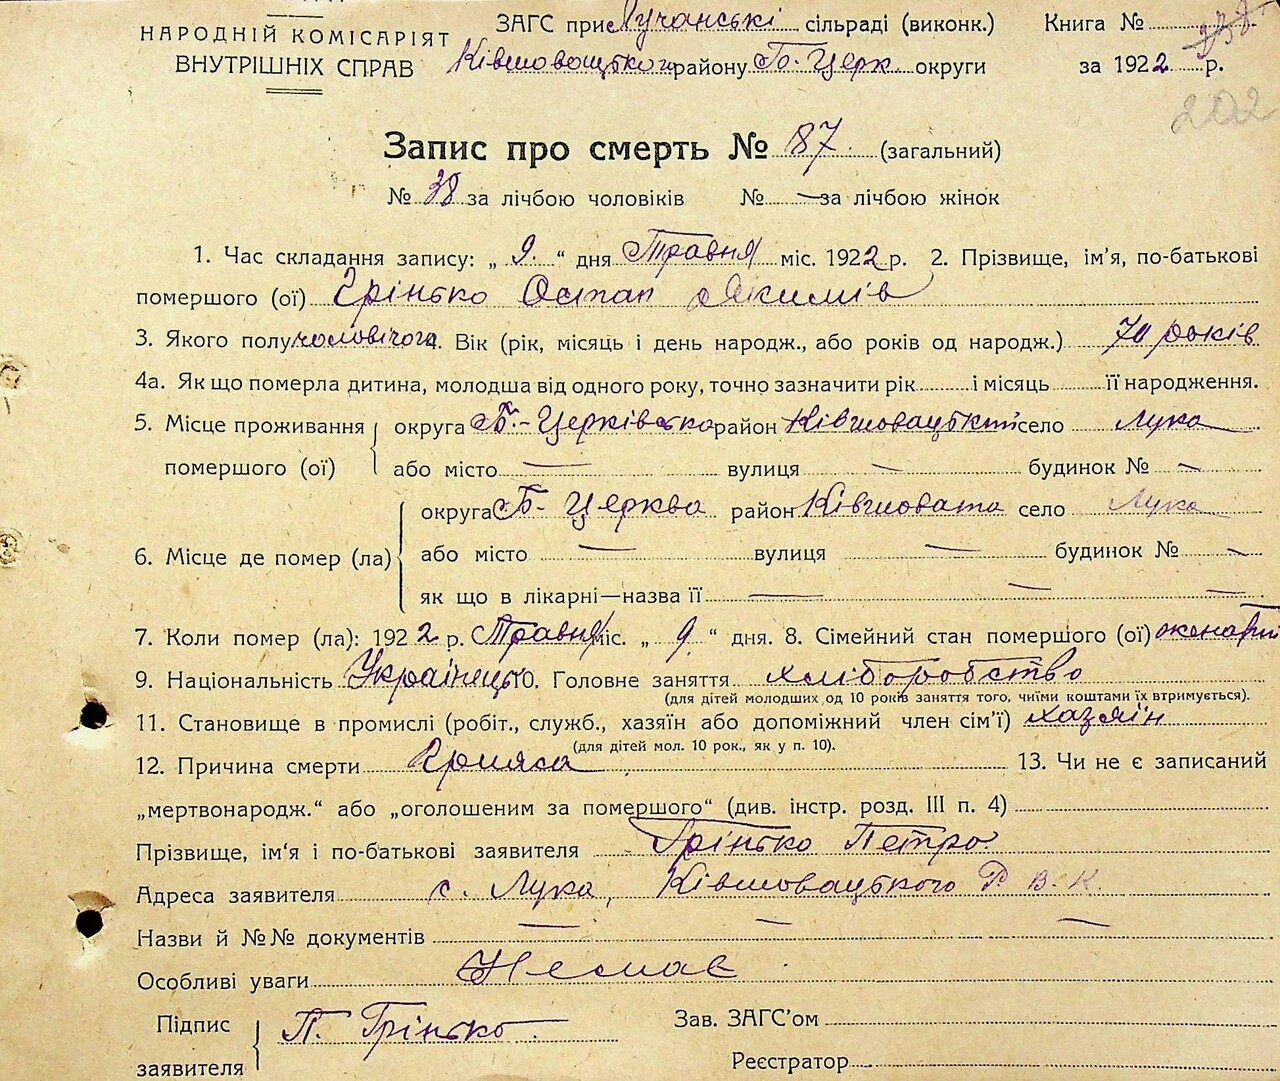 НАРОДНІЙ КОМІСАРІЯТ
ВНУТРІШНІХ СПРАВ
ЗАГС при Лучанські сільраді (виконк.) Книга №
Ківшовацького району Б.-Церк. округи за 1922 р.
202
Запис про смерть № 87. (загальний)
№ 38 за лічбою чоловіків № — за лічбою жінок
1. Час складання запису: „ 9. “ дня Травня міс. 1922 р. 2. Прізвище, ім'я, по-батькові
помершого (ої) Грінько Остап Якимів
3. Якого полу чоловічого. Вік (рік, місяць і день народж., або років од народж.) 70 років
4а. Як що померла дитина, молодша від одного року, точно зазначити рік і місяць її народження.
5. Місце проживання округа Б.-Церківська район Ківшовацький село Лука
помершого (ої) або місто — вулиця — будинок № —
округа Б-Церква район Ківшовата село Лука
6. Місце де помер (ла) або місто — вулиця — будинок № —
як що в лікарні—назва її — — —
7. Коли помер (ла): 1922 р. Травня міс. „ 9. “ дня. 8. Сімейний стан помершого (ої) женатий
9. Національність Українець 10. Головне заняття хліборобство
(для дітей молодших од 10 років заняття того, чиїми коштами їх втримується).
11. Становище в промислі (робіт., служб., хазяїн або допоміжний член сім'ї) хазяїн
(для дітей мол. 10 рок., як у п. 10).
12. Причина смерти 13. Чи не є записаний
„мертвонародж.“ або „оголошеним за помершого“ (див. інстр. розд. III п. 4)
Прізвище, ім'я і по-батькові заявителя Грінько Петро
Адреса заявителя с. Лука, Ківшовацького Р. В. К.
Назви й №№ документів — — —
Особливі уваги Немає
Підпис заявителя П. Грінько Зав. ЗАГС'ом
Реєстратор